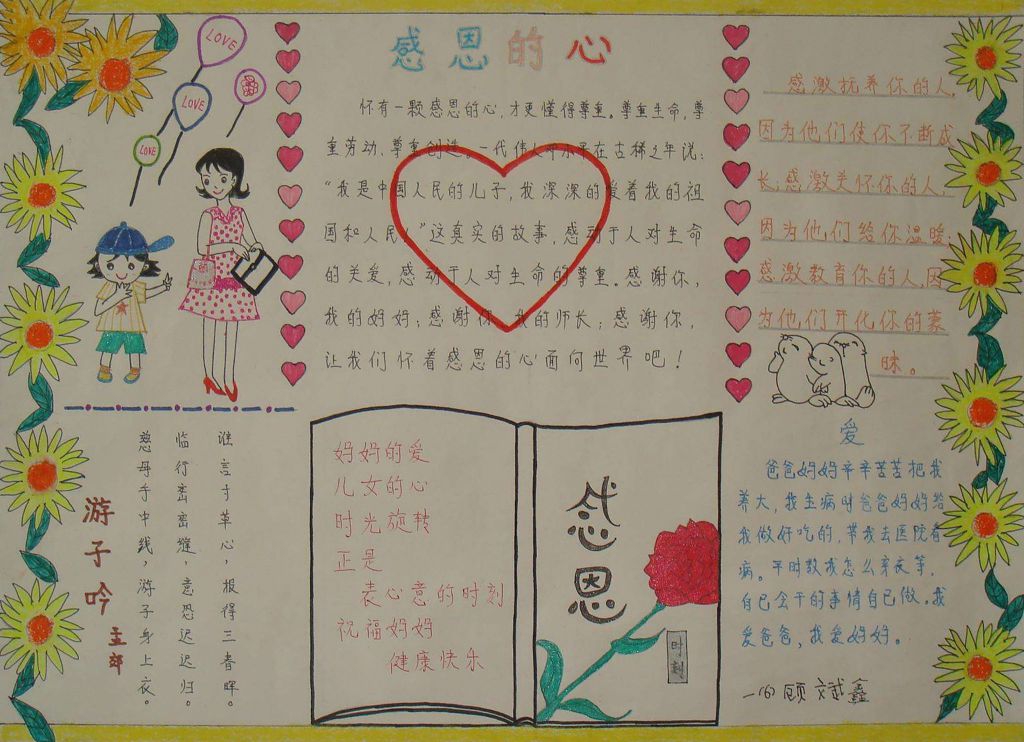 LOVE
LOVE
LOVE
感恩的心
怀有一颗感恩的心,才更懂得尊重。尊重生命,尊
重劳动、尊重创造。一代伟人邓小平在古稀之年说:
“我是中国人民的儿子,我深深的爱着我的祖
国和人民!”这真实的故事,感动于人对生命
的关爱,感动于人对生命的尊重。感谢你,
我的妈妈;感谢你,我的师长;感谢你,
让我们怀着感恩的心面向世界吧!
感激抚养你的人,
因为他们使你不断成
长;感激关怀你的人,
因为他们给你温暖;
感激教育你的人,因
为他们开化你的蒙
昧。
游子吟
孟郊
慈母手中线,游子身上衣。
临行密密缝,意恐迟迟归。
谁言寸草心,报得三春晖。
妈妈的爱
儿女的心
时光旋转
正是
表心意的时刻
祝福妈妈
健康快乐
感恩
时刻
爱
爸爸妈妈辛辛苦苦把我
养大,我生病时爸爸妈妈给
我做好吃的,带我去医院看
病。平时教我怎么穿衣等,
自己会干的事情自己做。我
爱爸爸,我爱妈妈。
一(6)顾斌鑫